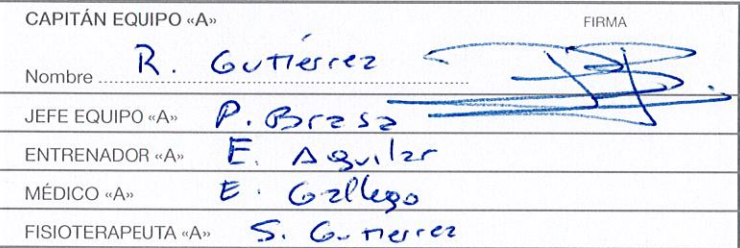 CAPITÁN EQUIPO «A» FIRMA
Nombre R. Gutiérrez
JEFE EQUIPO «A» P. Brasa
ENTRENADOR «A» E. Aguilar
MÉDICO «A» E. Gallego
FISIOTERAPEUTA «A» S. Gutierrez